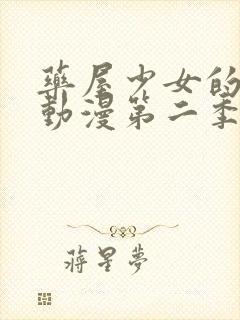 藥屋少女的
動漫第二季
蔣星夢